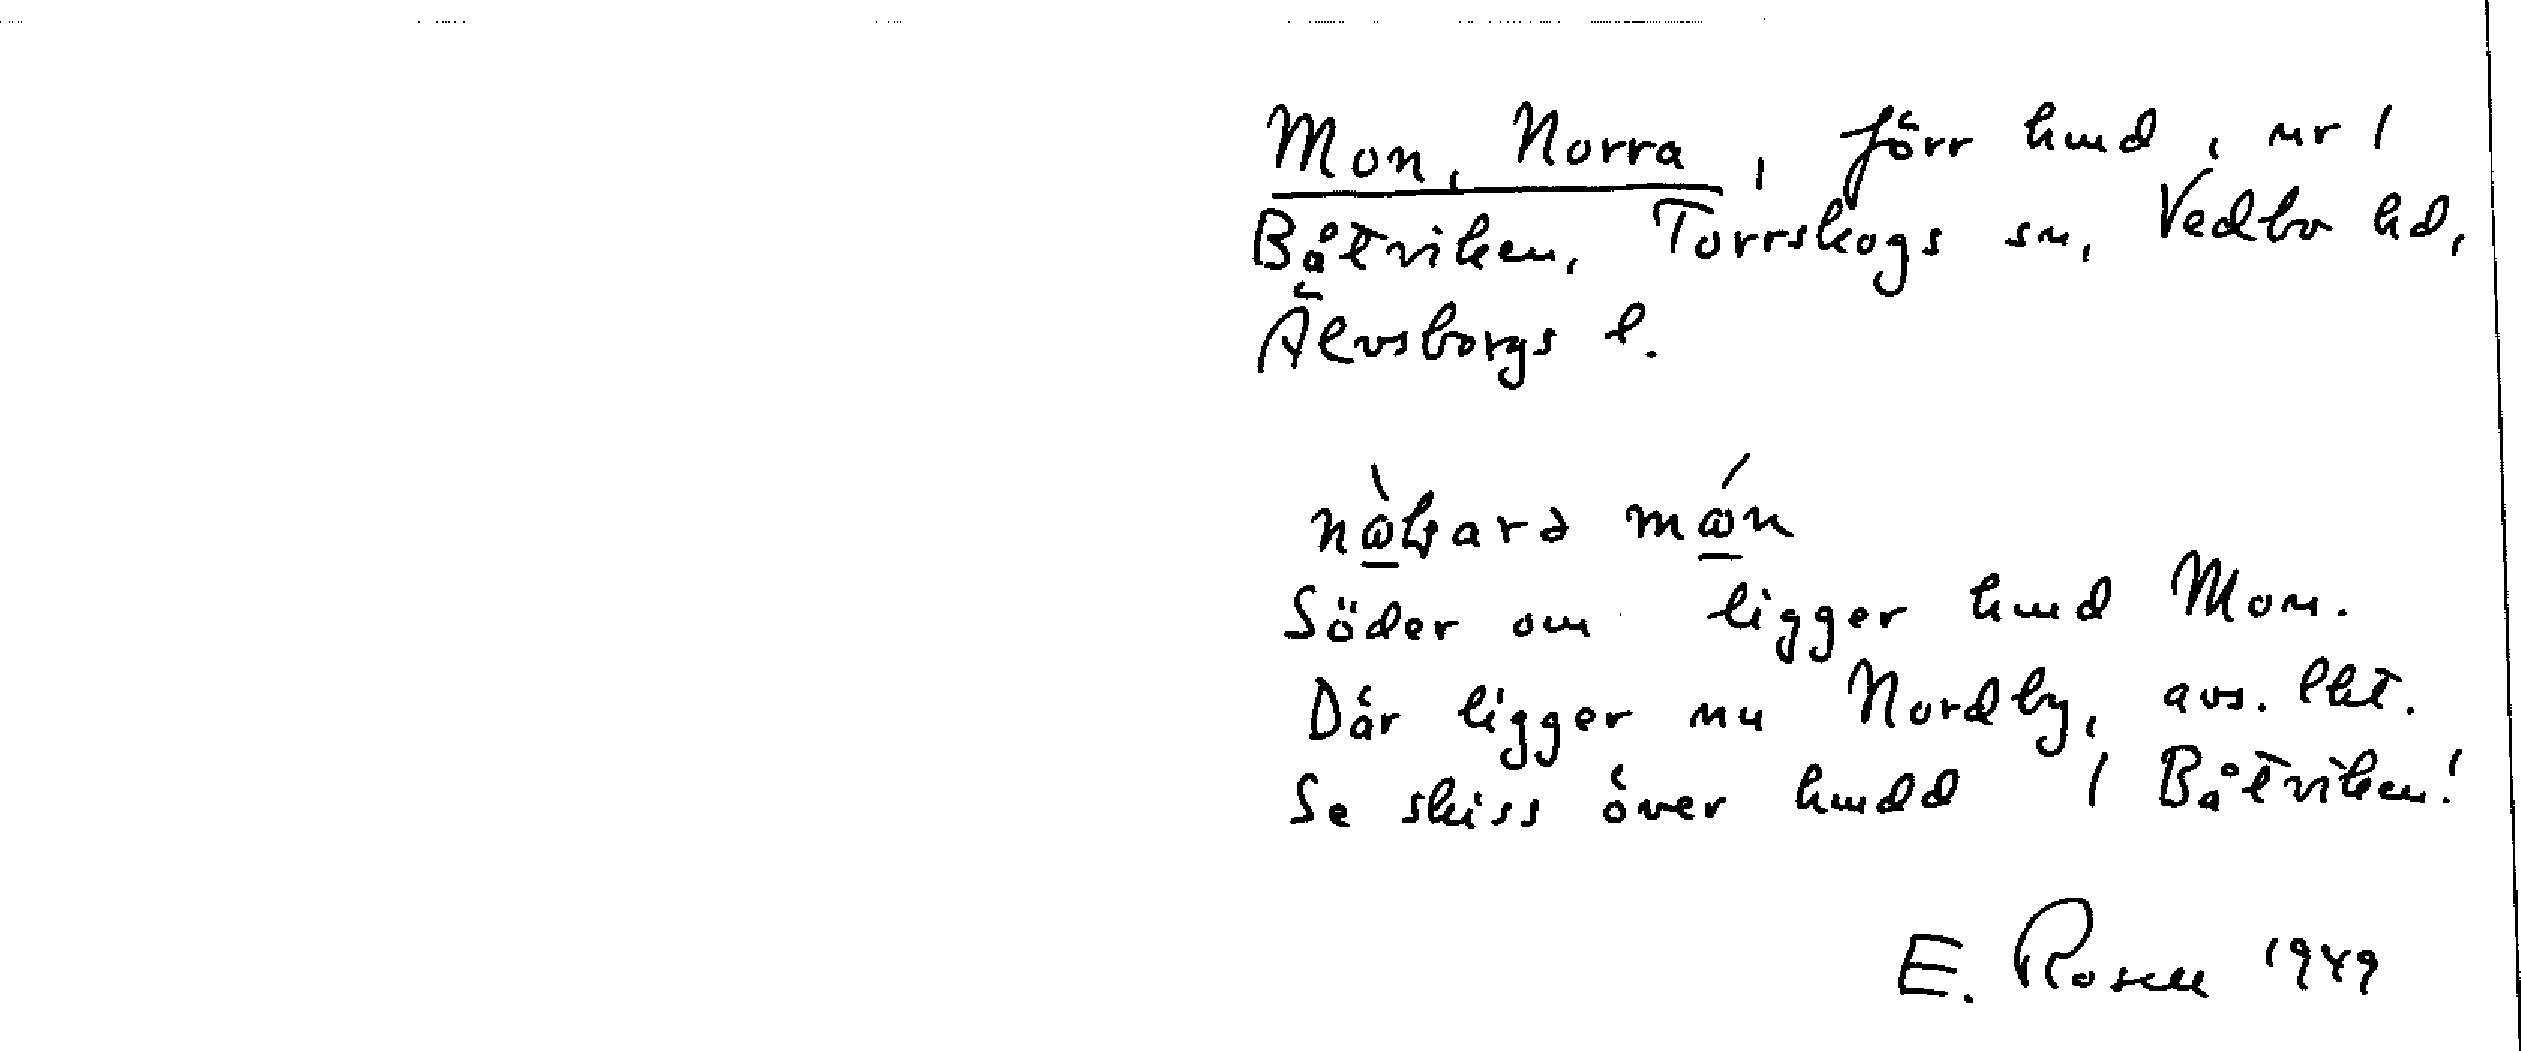 Mon, Norra, förr hmd, nr 1
Båtviken, Torrskogs sn, Vedbo hd,
Älvsborgs l.
món
Söder om ligger hmd Mon.
Där ligger nu Nordby, avs. lht.
Se skiss över hmdd 1 Båtviken!
E. Rosell 1949